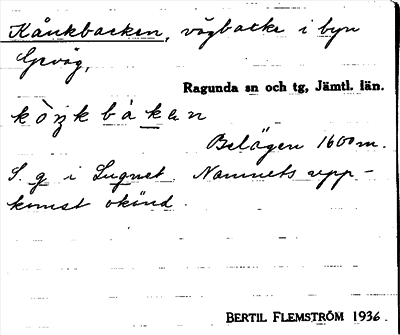 Kånkbacken, vägbacke i byn
Gevåg,
Ragunda sn och tg, Jämtl. län.
kòŋkbàkɘn
Belägen 1600 m.
S. g i Lugnet. Namnets upp-
komst okänd.
BERTIL FLEMSTRÖM 1936.